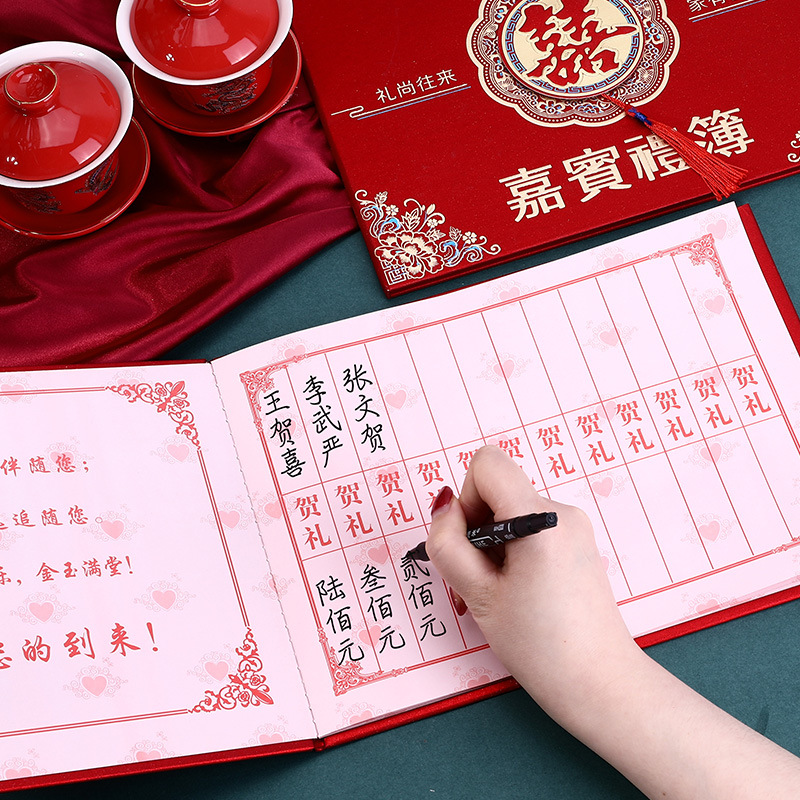 礼尚往来
囍
嘉賓禮簿
伴随您；
追随您。
乐，金玉满堂！
的到来！
王贺喜
李武严
张文贺
贺礼
贺礼
贺礼
贺礼
贺
贺
贺礼
贺礼
贺礼
贺礼
贺礼
贺礼
陆佰元
叁佰元
贰佰元